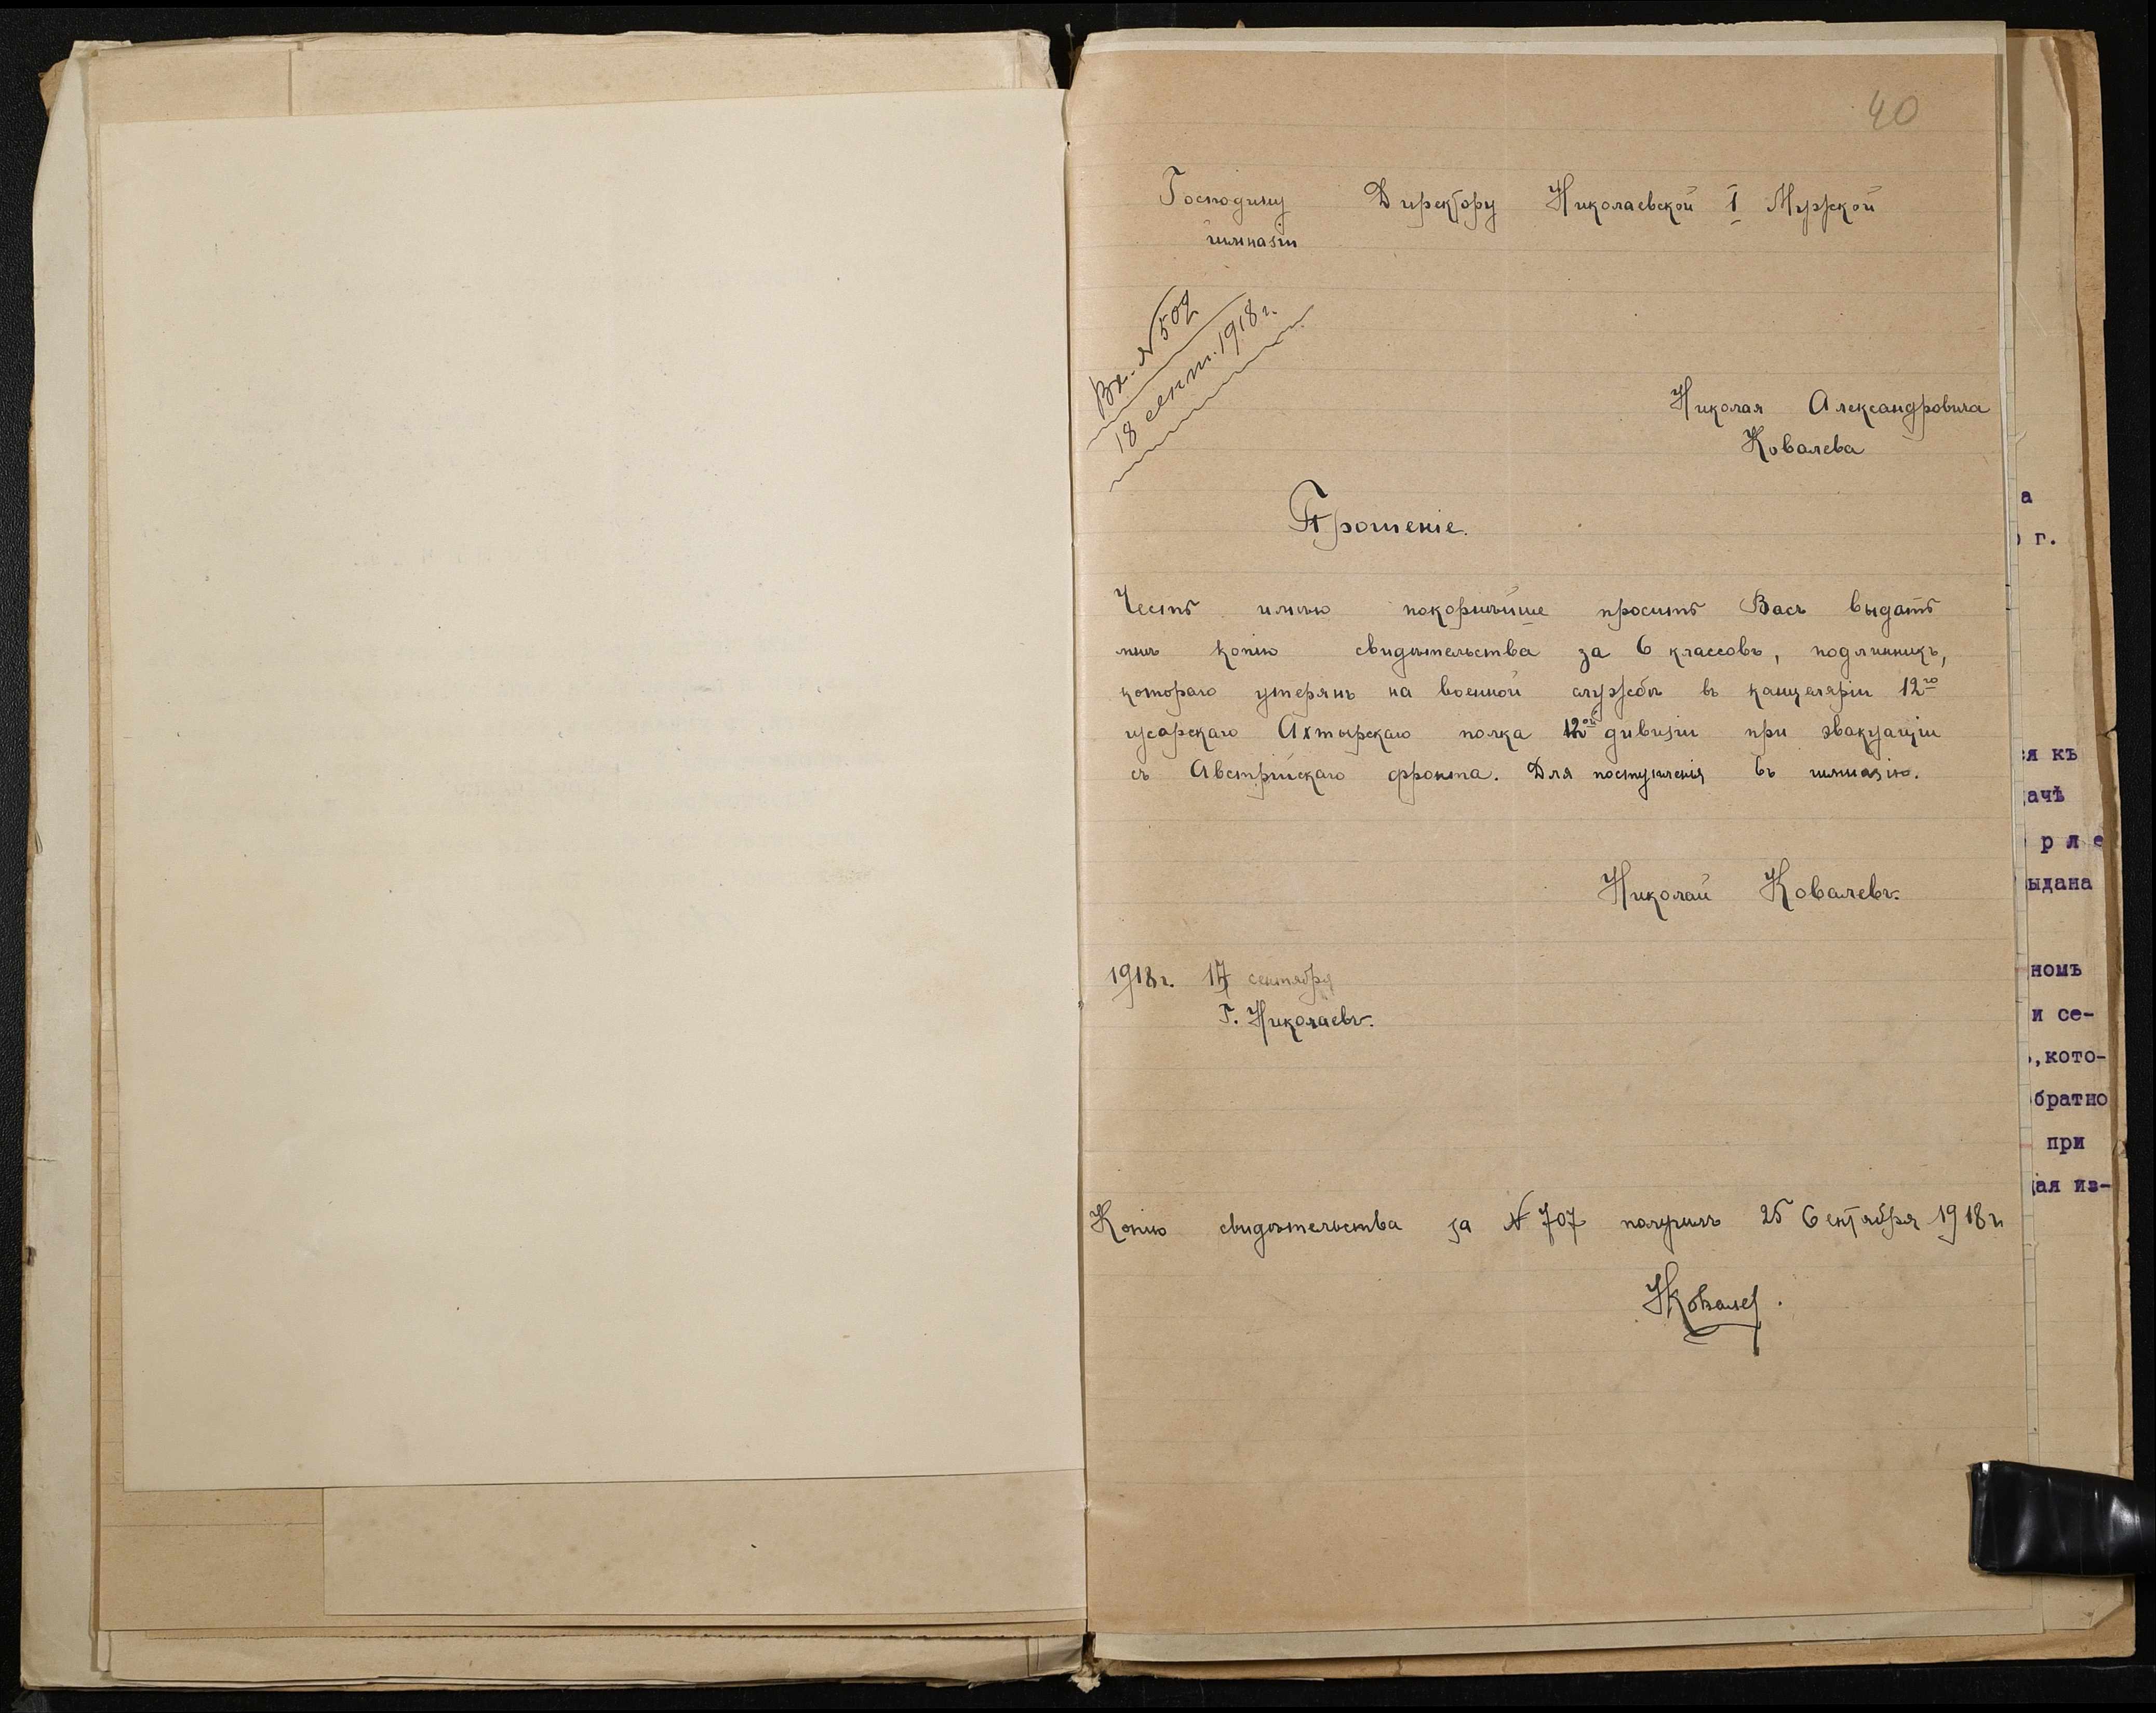 40
Господину Директору Николаевской I Мужской
гимназіи
Вх. № 507
18 сент. 1918 г.
Николая Александровича
Ковалева
Прошеніе.
Честь имѣю покорнѣйше просить Васъ выдать
мнѣ копію свидѣтельства за 6 классовъ, подлинникъ,
котораго утерянъ на военной службѣ въ канцеляріи 12го
гусарскаго Ахтырскаго полка 12ой дивизіи при эвакуаціи
съ Австрійскаго фронта. Для поступленія въ гимназію.
Николай Ковалевъ.
1918 г. 17 сентября
Г. Николаевъ.
Копію свидѣтельства за № 707 получилъ 25 Сентября 1918 г
НКовалев.
а
г.
ся къ
ачѣ
р л е
ыдана
номъ
и се-
,кото-
братно
при
ая из-